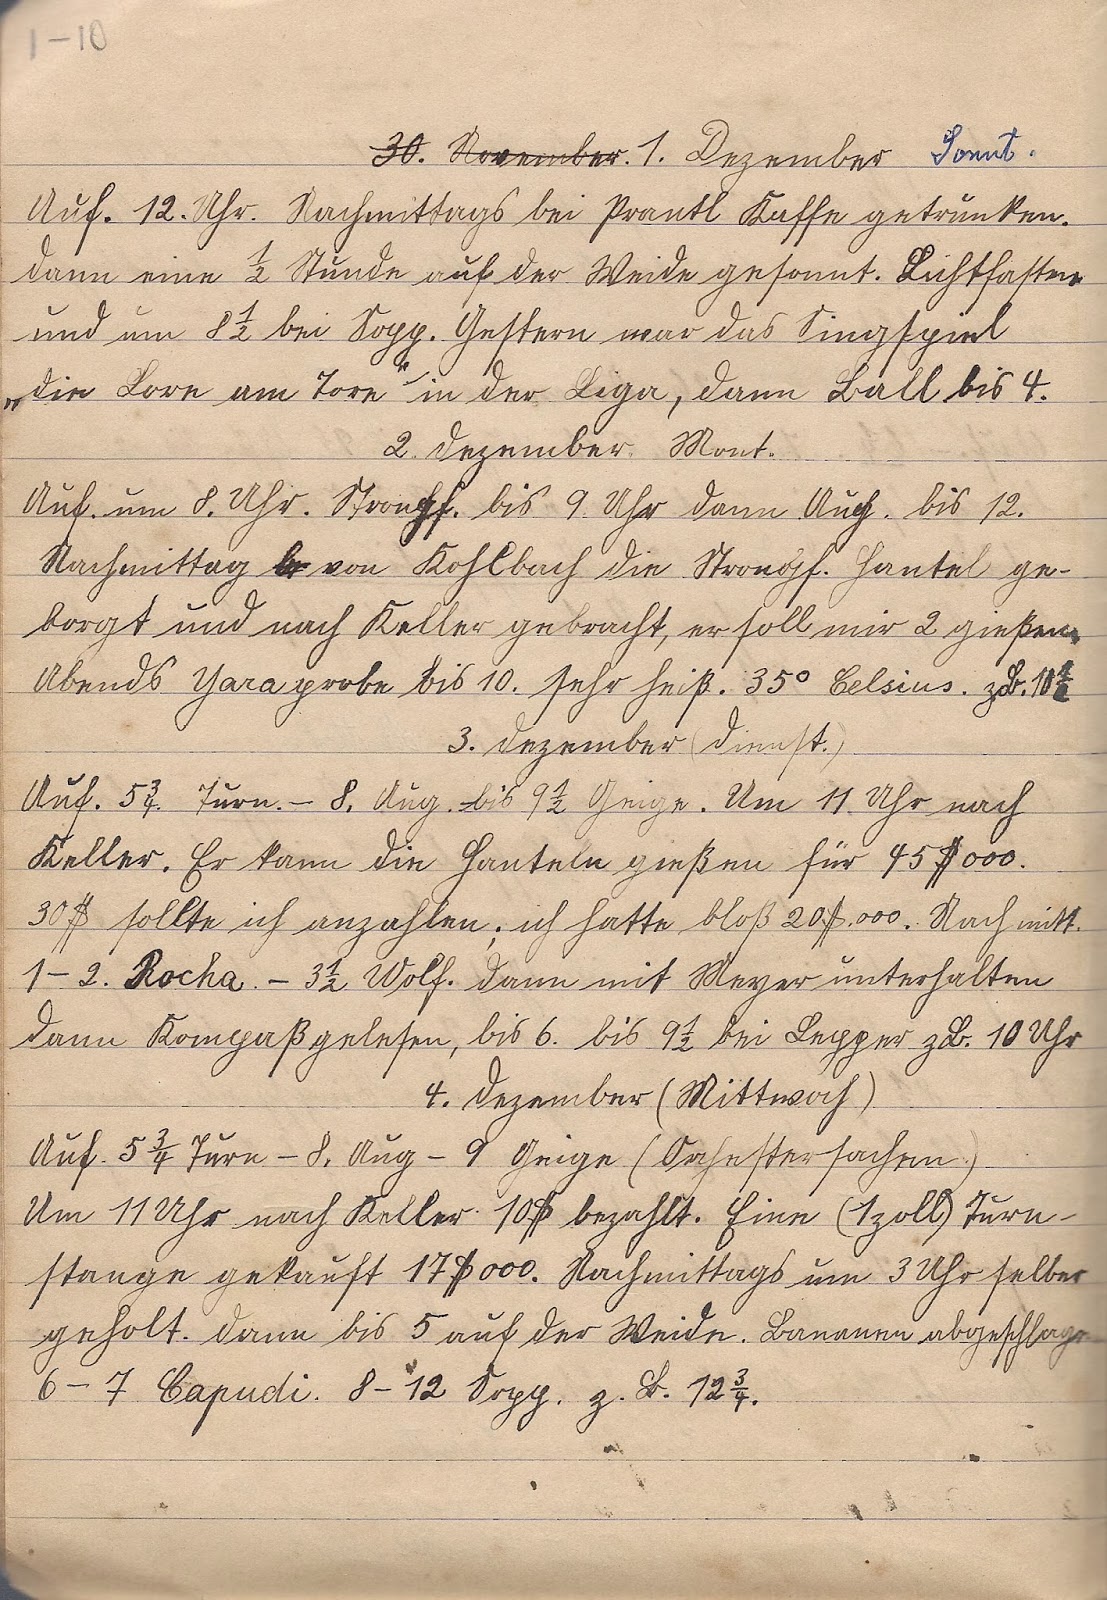 1-10
30. November. 1. Dezember Sonnt.
Auf. 12. Uhr. Nachmittags bei Prantl Kaffe getrunken.
dann eine ½ Stunde auf der Weide gesonnt.
und um 8½ bei Sopp. Gestern war das Singspiel
„die Lore am Tore" in der Liga, dann Ball bis 4.
2. Dezember. Mont.
Auf. um 8. Uhr. bis 9 Uhr dann Aug. bis 12.
Nachmittag von Kohlbach die Hantel ge-
borgt und nach Keller gebracht, er soll mir 2 gießen.
Abends Yara probe bis 10. sehr heiß. 35° Celsius. z.B. 10½
3. Dezember (Dienst.)
Auf. 5¾. Turn. - 8. Aug. bis 9½ Geige. Um 11 Uhr nach
Keller. Er kann die Hanteln gießen für 45$000.
30$ sollte ich anzahlen, ich hatte bloß 20$.000. Nachmitt.
1-2. Rocha. - 3½ Wolf. dann mit Meyer unterhalten
dann Kompaß gelesen, bis 6. bis 9½ bei Lepper z.B. 10 Uhr
4. Dezember (Mittwoch)
Auf. 5¾ Turn - 8. Aug - 9 Geige (Orchestersachen)
Um 11 Uhr nach Keller 10$ bezahlt. Eine (1 zoll) Turn-
stange gekauft 17$000. Nachmittags um 3 Uhr selber
geholt. dann bis 5 auf der Weide. Bananen abgeschlage
6-7 Capudi. 8-12 Sopp. z. B. 12¾.